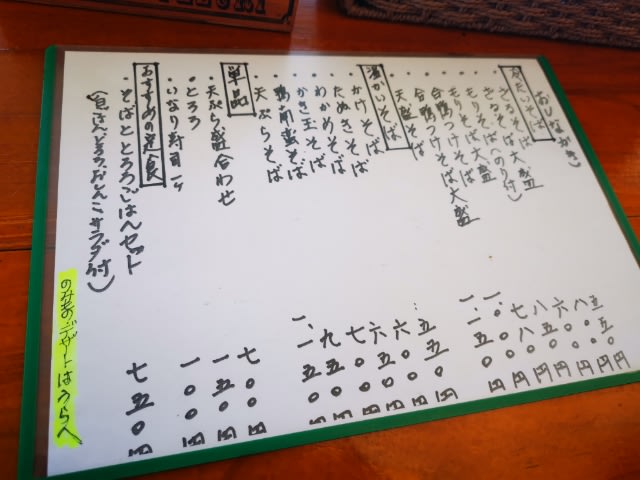 (おしながき)
冷たいそば
ざるそば大盛
ざるそば(のり付)
もりそば大盛
もりそば
合鴨つけそば大盛
合鴨つけそば
天盛そば
温かいそば
かけそば 五五〇円
たぬきそば 六〇〇円
わかめそば 六五〇円
かき玉そば 七〇〇円
鴨南蛮そば 九五〇円
天ぷらそば 一、一五〇円
単品
天ぷら盛合わせ 七〇〇円
とろろ 一五〇円
いなり寿司一ヶ 一〇〇円
おすすめの定食
そばととろろごはんセット 七五〇円
とろろおしんこサラダ付)
のみもの・デザートはうらへ